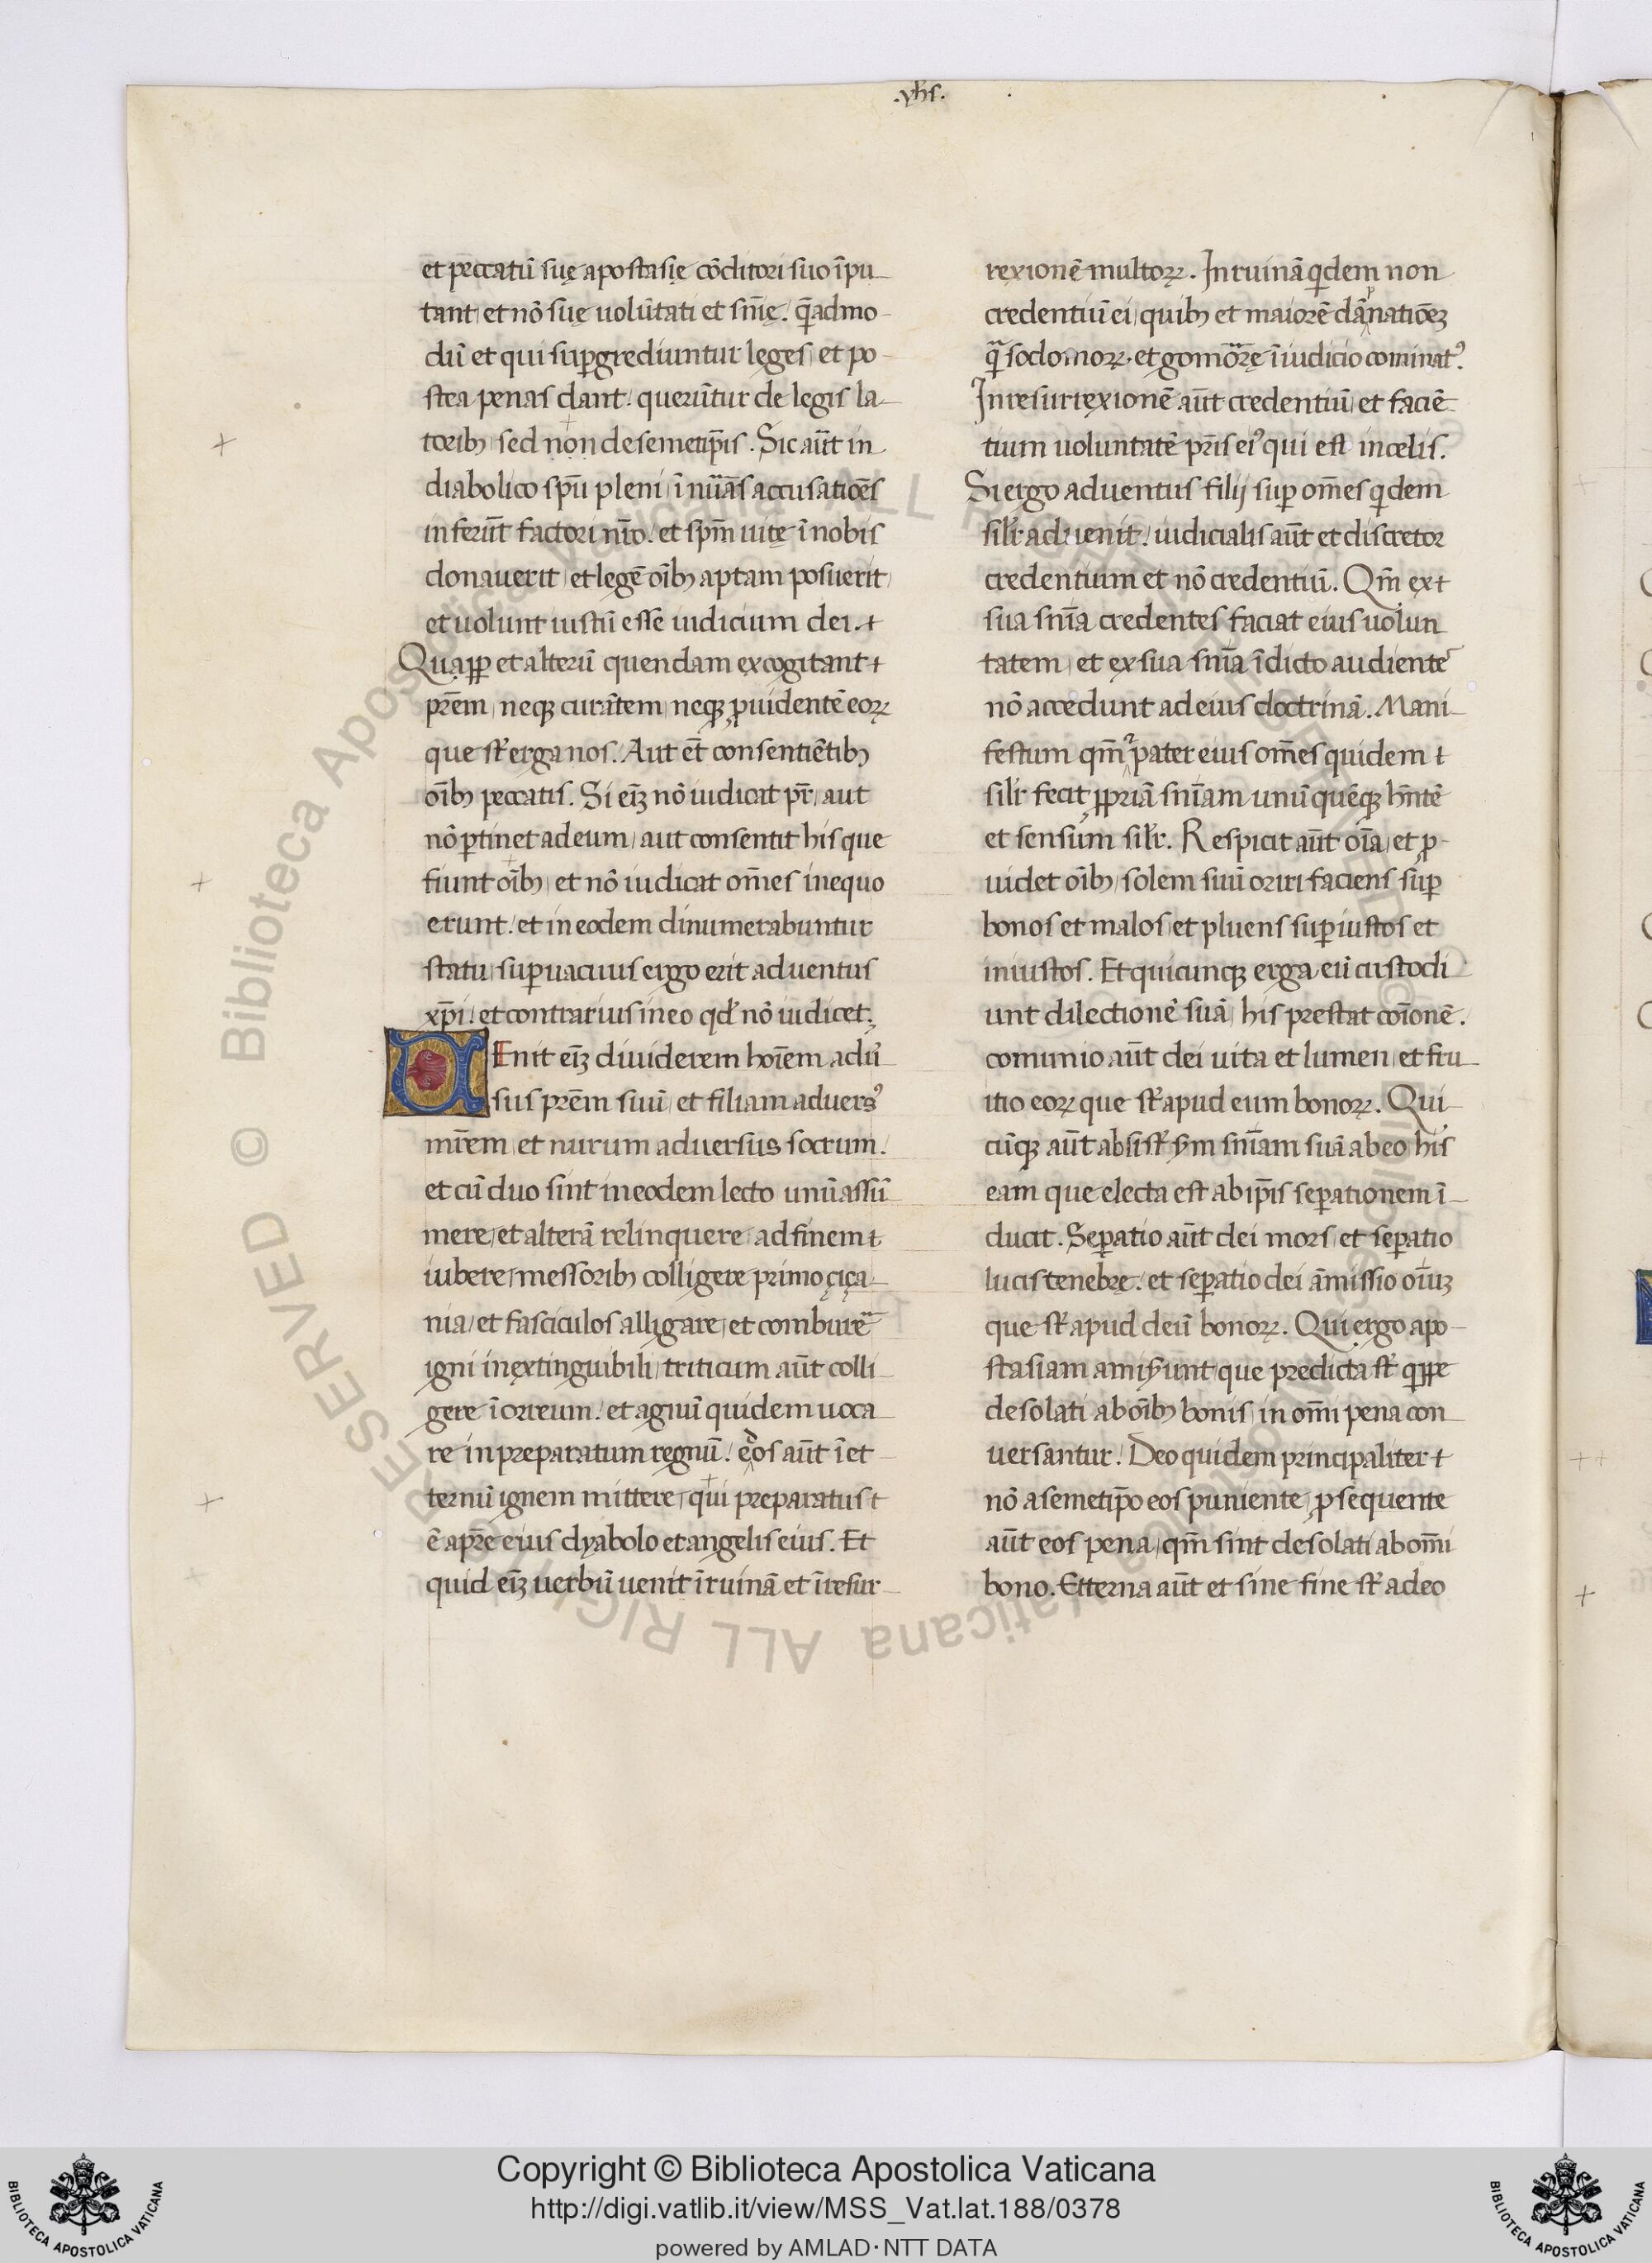 .yhs.
et peccatū suę apostasię cōditori suo īpu
tant, et nō suę volūtati et snīę. q̄admo
dū et qui sup̱grediuntur leges, et po
stea penas dant. querūtur de legis la
torib; sed non de semetip̄is. Sic aūt in
diabolico spū pleni, ī nūās accusatiōēs
inferūt factori nr̄o. et spm̄ uitę ī nobis
donauerit, et legē oīb; aptam posuerit,
et uolunt iustū esse iudicium dei.
Quap̱p̱ et alterū quendam excogitant
prēm, neq; curātem, neq; ꝓuidentē eoꝝ
que st̄ erga nos. Aut et̄ consentiētib;
oīb; peccatis. Si eīꝫ nō iudicat pr̄, aut
nō ꝑtinet ad eum, aut consentit his que
fiunt oīb; et nō iudicat om̄es inequo
erunt. et in eodem dinumerabuntur
statu, suꝑuacuus ergo erit aduentus
xp̄i. et contrarius in eo qd̄ nō iudicet.
UEnit eīꝫ diuiderem hoīem adu᷑
sus prēm suū, et filiam aduers⁹
mr̄em, et nurum aduersus socrum.
et cū duo sint in eodem lecto unū assū
mere, et alterā relinquere, ad finem
iubere, messorib; colligere primo çiça
nia, et fasciculos alligare, et comburē
igni inextinguibili, triticum aūt colli
gere ī orreum. et agnū quidem uoca
re in preparatum regnū. eos aūt ī et
ternū ignem mittere, qui preparatus
ē a pr̄e eius dyabolo et angelis eius. Et
quid eīꝫ uerbū uenit ī ruinā et ī resur
rexionē multoꝝ. In ruinā qdem non
credentiū ei, quib; et maiorē dānatiōeꝫ
q̄ sodomoꝝ. et gomorrę ī iudicio cominat⁹.
In resurrexionē aūt credentiū, et faciē
tium uoluntatē pr̄is ei⁹ qui est in celis.
Si ergo aduentus filij suꝑ om̄es qdem
silr̄ aduenit. iudicialis aūt et discretor
credentium et nō credentiū. Qm̄ ex
sua snīa credentes faciat eius uolun
tatem, et ex sua snīa īdicto audiente
nō accedunt ad eius doctrinā. Mani
festum qm̄ pater eius om̄es quidem
silr̄ fecit ꝓpriā snīam unūquēq; hn̄tē
et sensum silr̄. Respicit aūt oīa, et ꝓ
uidet oīb; solem suū oriri faciens suꝑ
bonos et malos et pluens suꝑ iustos et
iniustos. Et quicunq; erga eū custodi
unt dilectionē suā, his prestat coīonē.
comunio aūt dei uita et lumen, et fru
itio eoꝝ que st̄ apud eum bonoꝝ. Qui
cūq; aūt absist̄ ym snīam suā ab eo his
eam que electa est ab ip̄is seꝑationem ī
ducit. Seꝑatio aūt dei mors, et seꝑatio
lucis tenebrę. et seꝑatio dei āmissio oīuꝫ
que st̄ apud deū bonoꝝ. Qui ergo apo
stasiam amisȳunt que predicta st̄ qp̱p̱e
desolati ab oīb; bonis, in om̄i pena con
uersantur. Deo quidem principaliter
nō a semetip̄o eos puniente, ꝓsequente
aūt eos pena, qm̄ sint desolati ab om̄i
bono. Etterna aūt et sine fine st̄ a deo
© Biblioteca Apostolica Vaticana ALL RIGHTS RESERVED
© Biblioteca Apostolica Vaticana ALL RIGHTS RESERVED
Copyright © Biblioteca Apostolica Vaticana
http://digi.vatlib.it/view/MSS_Vat.lat.188/0378
powered by AMLAD·NTT DATA
BIBLIOTECA APOSTOLICA VATICANA
BIBLIOTECA APOSTOLICA VATICANA